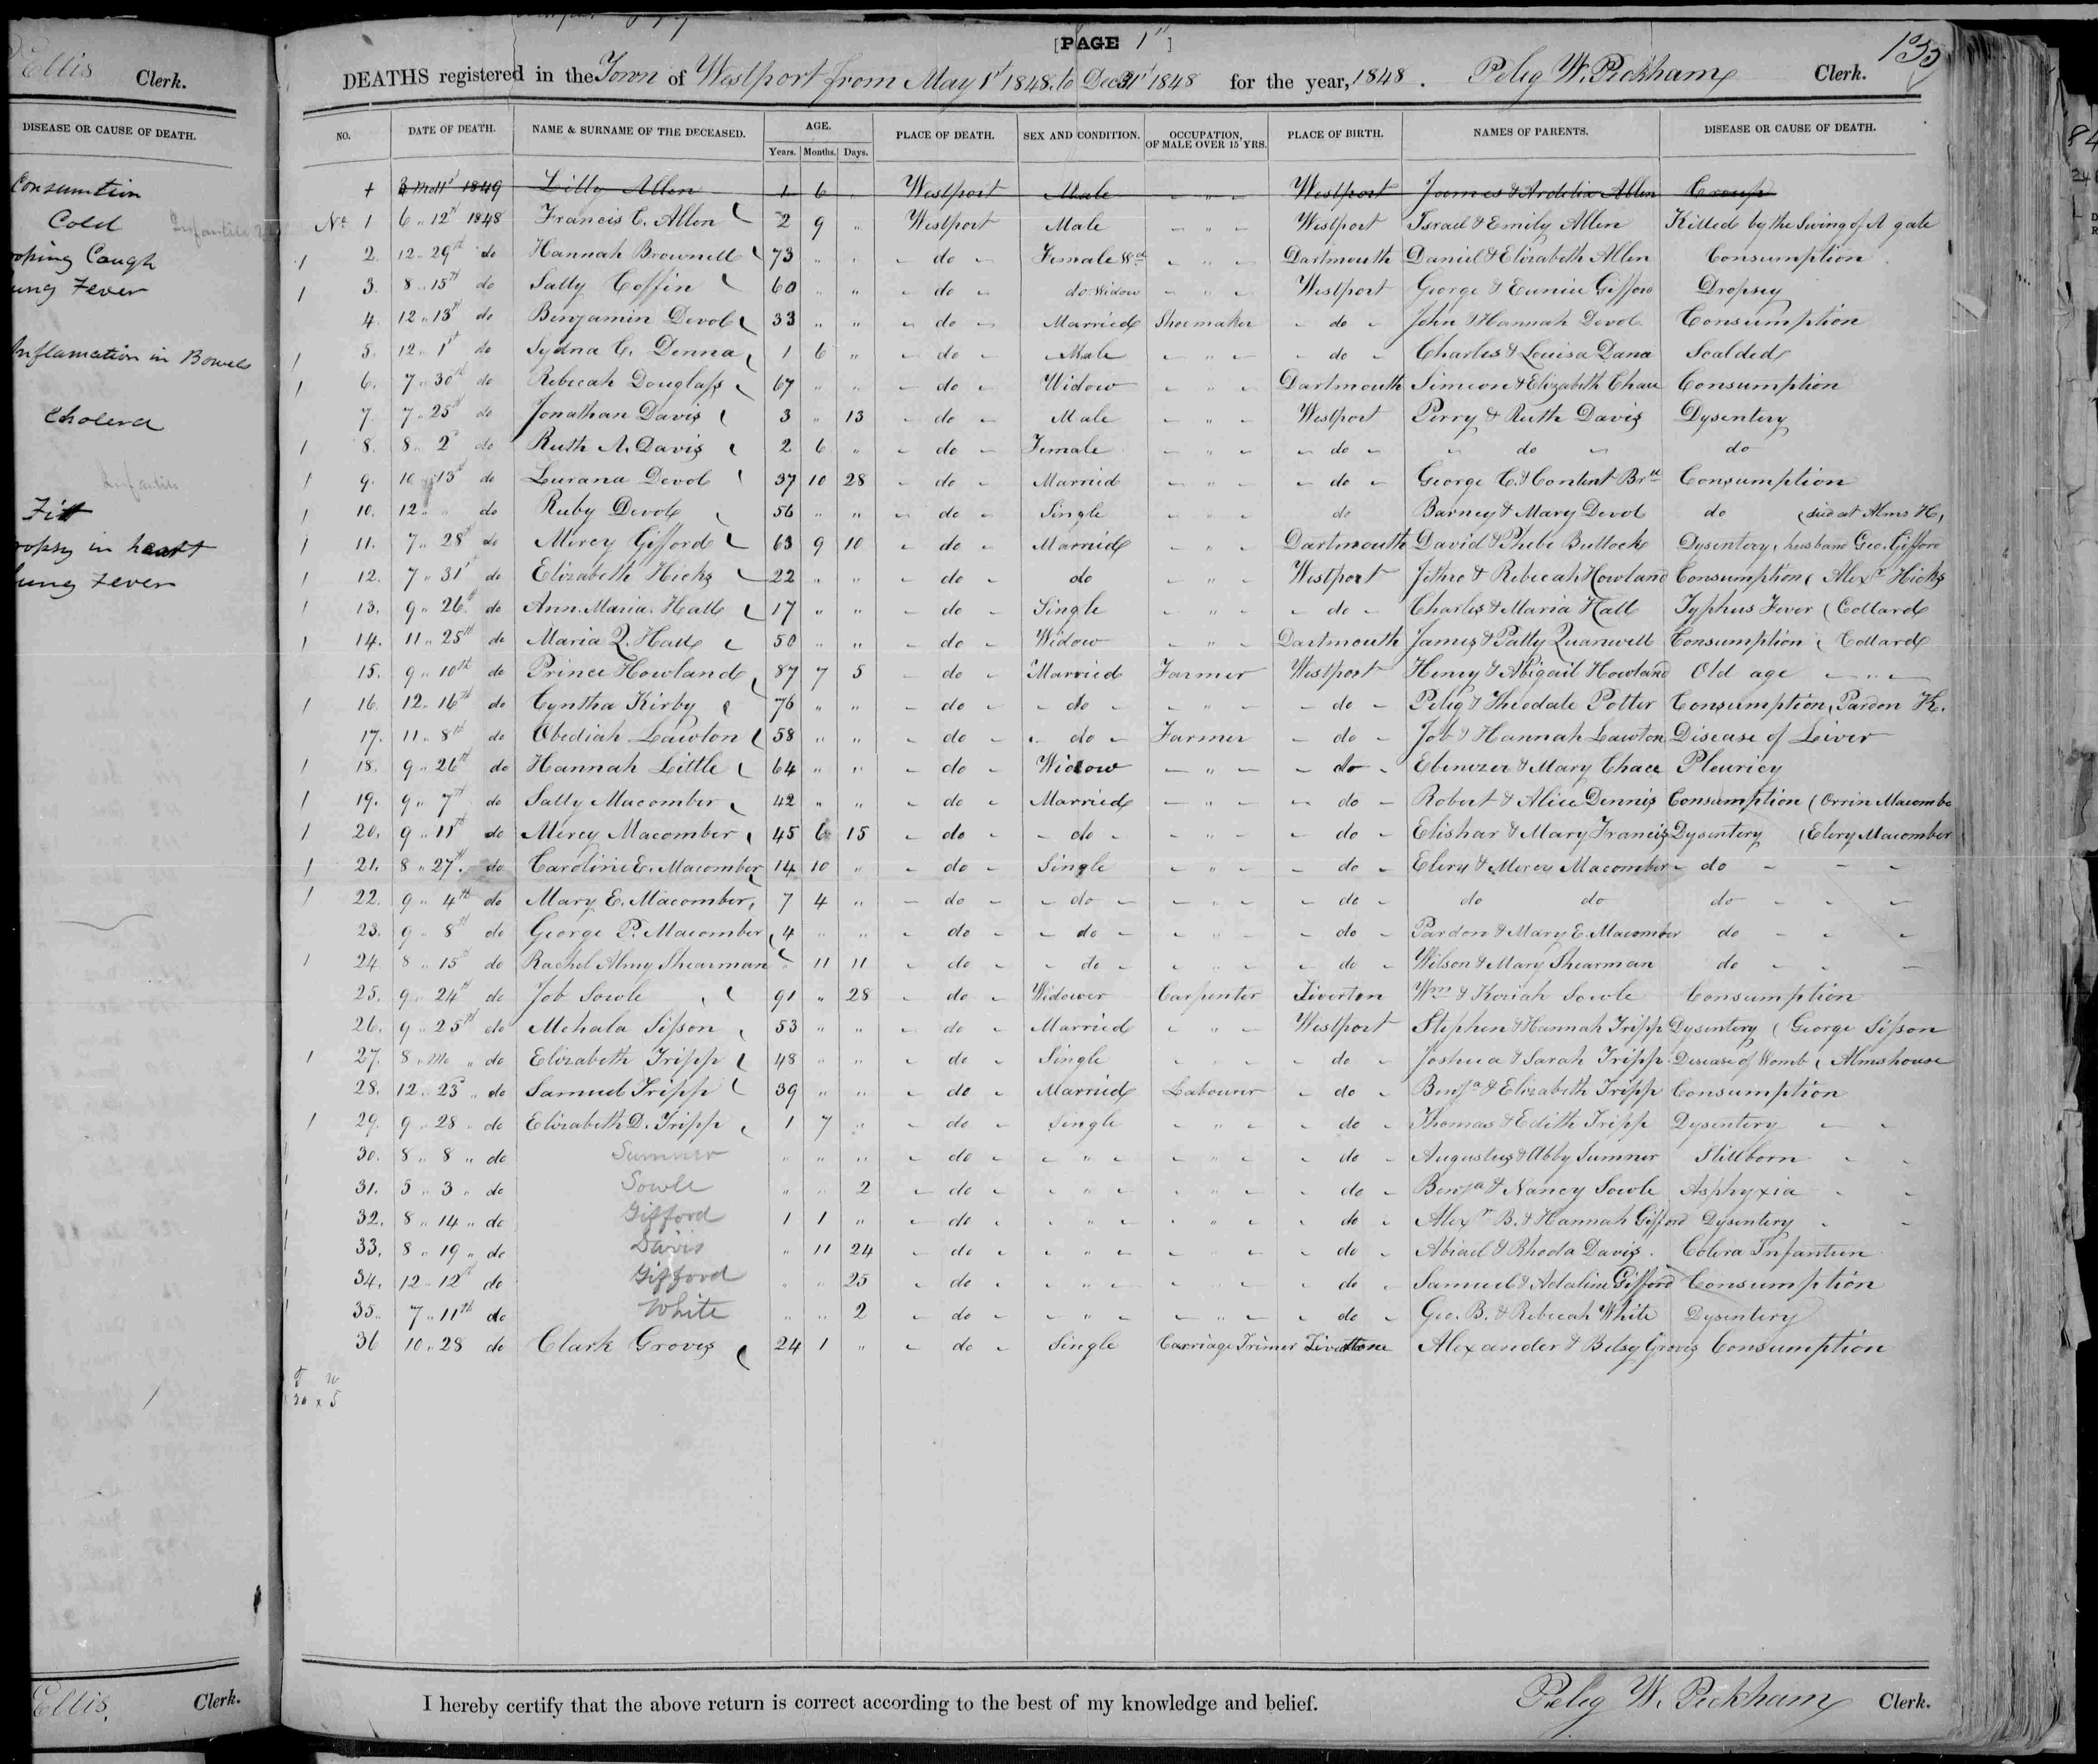 Ellis Clerk.
DISEASE OR CAUSE OF DEATH.
Consumtion
Cold
oping Cough
ung Fever
Inflamation in Bowels
Cholera
Infantile
Fitt
ropsy in heart
Lung Fever
Ellis, Clerk.
[PAGE 1st]
DEATHS registered in the Town of Westport from May 1st 1848, to Dec 31st 1848 for the year, 1848. Peleg W. Peckham Clerk.
NO. DATE OF DEATH. NAME & SURNAME OF THE DECEASED. AGE. Years. Months. Days. PLACE OF DEATH. SEX AND CONDITION. OCCUPATION, OF MALE OVER 15 YRS. PLACE OF BIRTH. NAMES OF PARENTS. DISEASE OR CAUSE OF DEATH.
1849 Lilly Allen 1 6 " Westport Male - " - Westport James & Ardelia Allen Croup
No 1 6 " 12th 1848 Francis C. Allen 2 9 " Westport Male - " - Westport Israel & Emily Allen Killed by the Swing of A gate
2. 12 " 29th do Hannah Brownell 73 " " - do - Female Wd - " - Dartmouth Daniel & Elizabeth Allen Consumption
3. 8 " 15th do Sally Coffin 60 " " - do - do Widow - " - Westport George & Eunice Gifford Dropsey
4. 12 " 13th do Benjamin Devol 33 " " - do - Married Shoemaker - do - John & Hannah Devol Consumption
5. 12 " 1st do Sydna C. Denna 1 6 " - do - Male - " - - do - Charles & Louisa Dana Scalded
6. 7 " 30th do Rebecah Douglass 67 " " - do - Widow - " - Dartmouth Simeon & Elizabeth Chace Consumption
7. 7 " 25th do Jonathan Davis 3 " 13 - do - Male - " - Westport Perry & Ruth Davis Dysentery
8. 8 " 2d do Ruth A. Davis 2 6 " - do - Female - " - - do - " do " do
9. 10 " 13th do Lurana Devol 37 10 28 - do - Married - " - - do - George C. & Content Brll Consumption
10. 12 " " do Ruby Devol 56 " " - do - Single - " - do Barney & Mary Devol do (died at Alms H,
11. 7 " 28th do Mercy Gifford 63 9 10 - do - Married - " - Dartmouth David & Phebe Bullock Dysentery, husband Geo. Gifford
12. 7 " 31st do Elizabeth Hicks 22 " " - do - do - " - Westport Jethro & Rebecah Howland Consumption ( Alexr Hicks
13. 9 " 26th do Ann. Maria. Hall 17 " " - do - Single - " - - do - Charles & Maria Hall Typhus Fever ( Collard
14. 11 " 25th do Maria Q. Hall 50 " " - do - Widow - " - Dartmouth James & Patty Quanwell Consumption ( Collard
15. 9 " 10th do Prince Howland 87 7 5 - do - Married Farmer Westport Henry & Abigail Howland Old age - " -
16. 12 " 16th do Cyntha Kirby 76 " " - do - - do - - " - - do - Peleg & Theodate Potter Consumption, Pardon K.
17. 11 " 8th do Obediah Lawton 58 " " - do - - do - Farmer - do - Job & Hannah Lawton Disease of Liver
18. 9 " 26th do Hannah Little 64 " " - do - Widow - " - - do - Ebenezer & Mary Chace Pleuricy
19. 9 " 7th do Sally Macomber 42 " " - do - Married - " - - do - Robert & Alice Dennis Consumption ( Orrin Macombe
20. 9 " 11th do Mercy Macomber 45 6 15 - do - - do - - " - - do - Elishar & Mary Francis Dysentery (Elery Macomber
21. 8 " 27th. do Caroline E. Macomber 14 10 " - do - Single - " - - do - Elery & Mercy Macomber - do - - -
22. 9 " 4th do Mary E. Macomber, 7 4 " - do - - do - - " - - do - do do do - - -
23. 9 " 8th do George P. Macomber 4 " " - do - - do - - " - - do - Pardon & Mary E. Macomber do - - -
24 8 " 15th do Rachel Almy Shearman " 11 11 - do - - do - - " - - do - Wilson & Mary Shearman do - - -
25. 9 " 24th do Job Sowle 91 " 28 - do - Widower Carpenter Tiverton Wm & Koziah Sowle Consumption
26. 9 " 25th do Mehala Sisson 53 " " - do - Married - " - Westport Stephen & Hannah Tripp Dysentery ( George Sisson
27. 8 " Mo " do Elizabeth Tripp 48 " " - do - Single - " - - do - Joshua & Sarah Tripp Desease of Womb ( Almshouse
28. 12 " 23d " do Samuel Tripp 39 " " - do - Married Labourer - do - Benja & Elizabeth Tripp Consumption
29. 9 " 28 " do Elizabeth D. Tripp 1 7 " - do - Single - " - - do - Thomas & Edith Tripp Dysentery - -
30. 8 " 8 " do Sumner " " " - do - - " - - " - - do - Augustus & Abby Sumner Stillborn - -
31. 5 " 3 " do Sowle " " 2 - do - - " - - " - - do - Benja & Nancy Sowle Asphyxia - -
32. 8 " 14 " do Gifford 1 1 " - do - - " - - " - - do - Alexr B. & Hannah Gifford Dysentery - -
33. 8 " 19 " do Davis " 11 24 - do - - " - - " - - do - Abiael & Rhoda Davis. Colera Infantum
34. 12 " 12th do Gifford " " 25 - do - - " - - " - - do - Samuel & Adaline Gifford Consumption
35. 7 " 11th do White " " 2 - do - - " - - " - - do - Geo. B. & Rebecah White Dysentery
36 10 " 28 do Clark Groves 24 1 " - do - Single Carriage Trimer Tivertone Alexander & Betsy Groves Consumption
I hereby certify that the above return is correct according to the best of my knowledge and belief. Peleg W. Peckham Clerk.